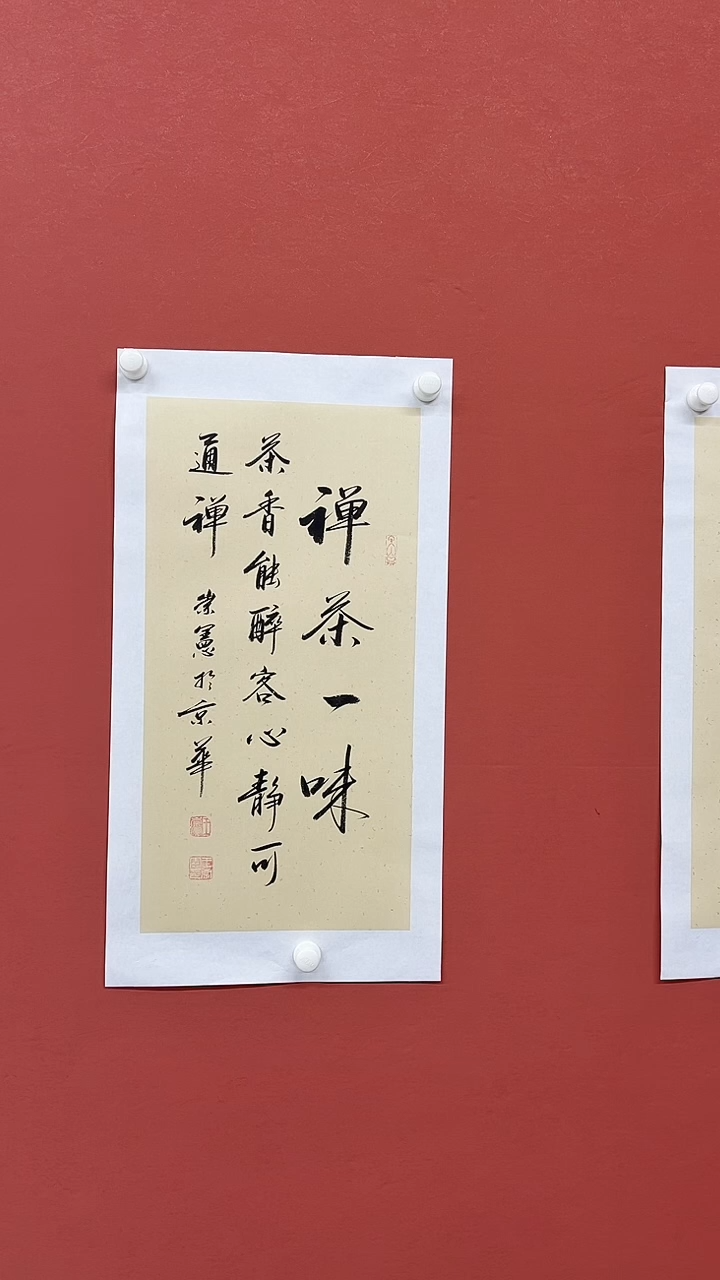 禅茶一味
茶香能醉客心静可
通禅
崇憲於京華